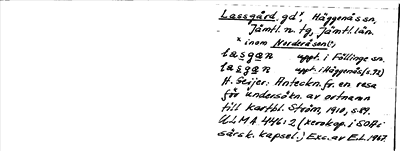 Lassgård, gd×, Häggenås sn,
Jämtl. n. tg, Jämtl. län.
× inom Norderåsen(!)
lasgan uppt. i Föllinge sn.
lasgan uppt. i Häggenås (s. 72)
H. Geijer: Anteckn. fr. en resa
för undersökn. av ortnamn
till kartbl. Ström, 1910, s. 89.
ULMA 446:2 (xerokop. i SOA i
särsk. kapsel.) Exc. av E.L. 1967.